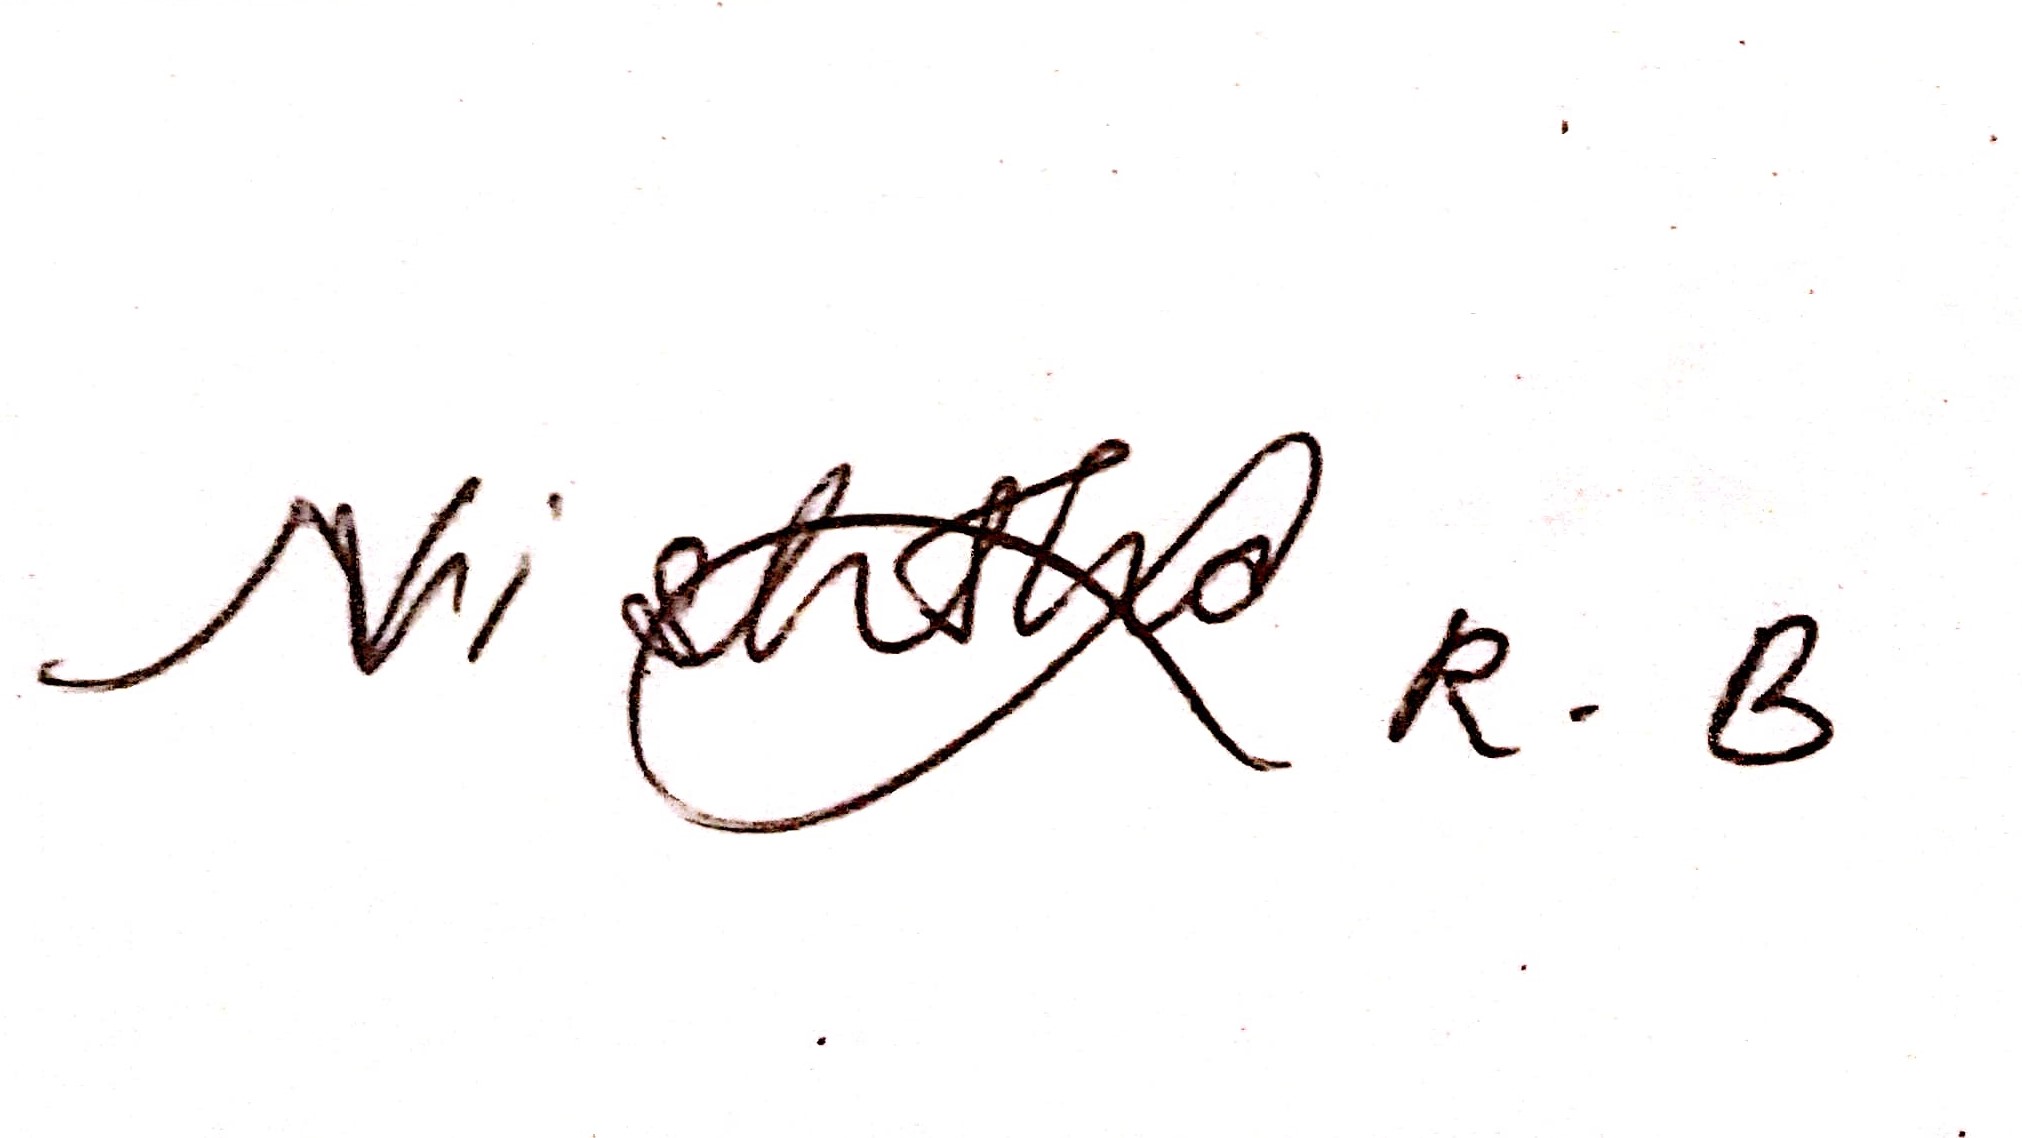 Nishitha R. B